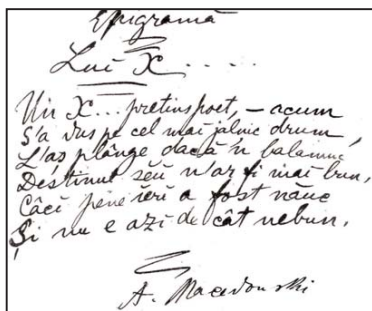 Epigramă
Lui X.....
Un X... pretins poet, – acum
S'a dus pe cel mai jalnic drum,
L'aș plânge dacă'n balamuc
Destinul său n'ar fi mai bun,
Căci pene ieri a fost năuc
Și nu e azi de cât nebun.
A. Macedonski